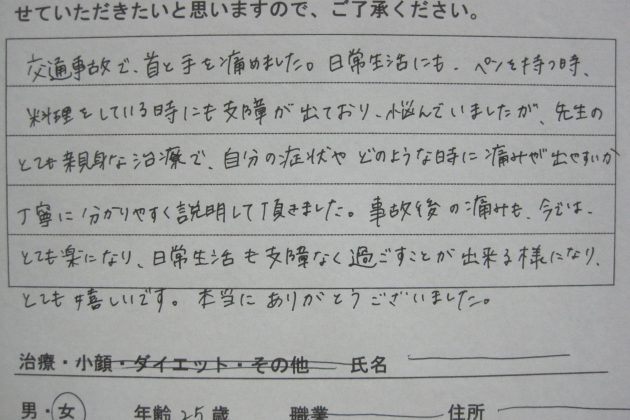 せていただきたいと思いますので、ご了承ください。
交通事故で、首と手を痛めました。日常生活にも、ペンを持つ時、
料理をしている時にも支障が出ており、悩んでいましたが、先生の
とても親身な治療で、自分の症状や どのような時に痛みが出やすいか
丁寧に分かりやすく説明して頂きました。事故後の痛みも、今では、
とても楽になり、日常生活も支障なく過ごすことが出来る様になり、
とても嬉しいです。本当にありがとうございました。
治療・小顔・ダイエット・その他 氏名
男・女 年齢25歳 職業 住所